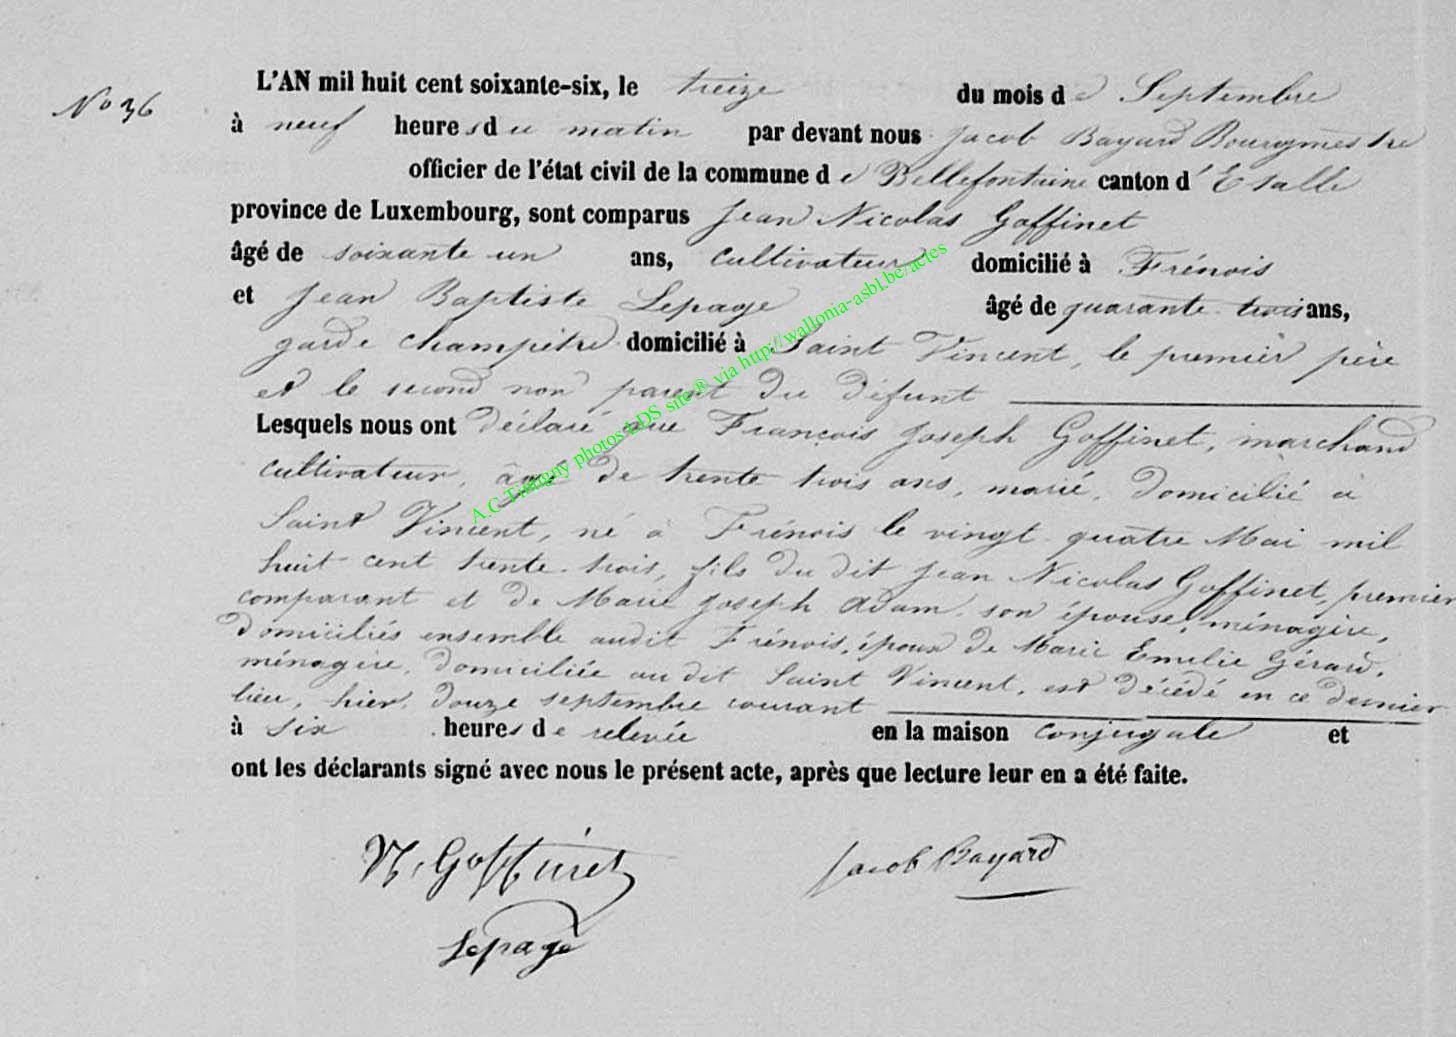 L'AN mil huit cent soixante-six, le treize du mois de Septembre
No 36
à neuf heures du matin par devant nous Jacob Bayard Bourgmestre
officier de l'état civil de la commune de Bellefontaine canton d'Etalle
province de Luxembourg, sont comparus Jean Nicolas Goffinet
âgé de soixante un ans, cultivateur domicilié à Frénois
et Jean Baptiste Lepage âgé de quarante trois ans,
garde champêtre domicilié à Saint Vincent, le premier père
et le second non parent du défunt
Lesquels nous ont déclaré que François Joseph Goffinet, marchand
cultivateur, âgé de trente trois ans, marié, domicilié à
Saint Vincent, né à Frénois le vingt quatre Mai mil
huit cent trente-trois, fils du dit Jean Nicolas Goffinet, premier
comparant et de Marie Joseph Adam, son épouse, ménagère,
domiciliés ensemble audit Frénois, époux de Marie Emelie Gérard,
ménagère, domiciliée au dit Saint Vincent, est décédé en ce dernier
lieu, hier, douze septembre courant
à six heures de relevée en la maison conjugale et
ont les déclarants signé avec nous le présent acte, après que lecture leur en a été faite.
N. Goffinet Jacob Bayard
Lepage
A.C Tintigny photos LDS site® via http://wallonia-asbl.be/actes